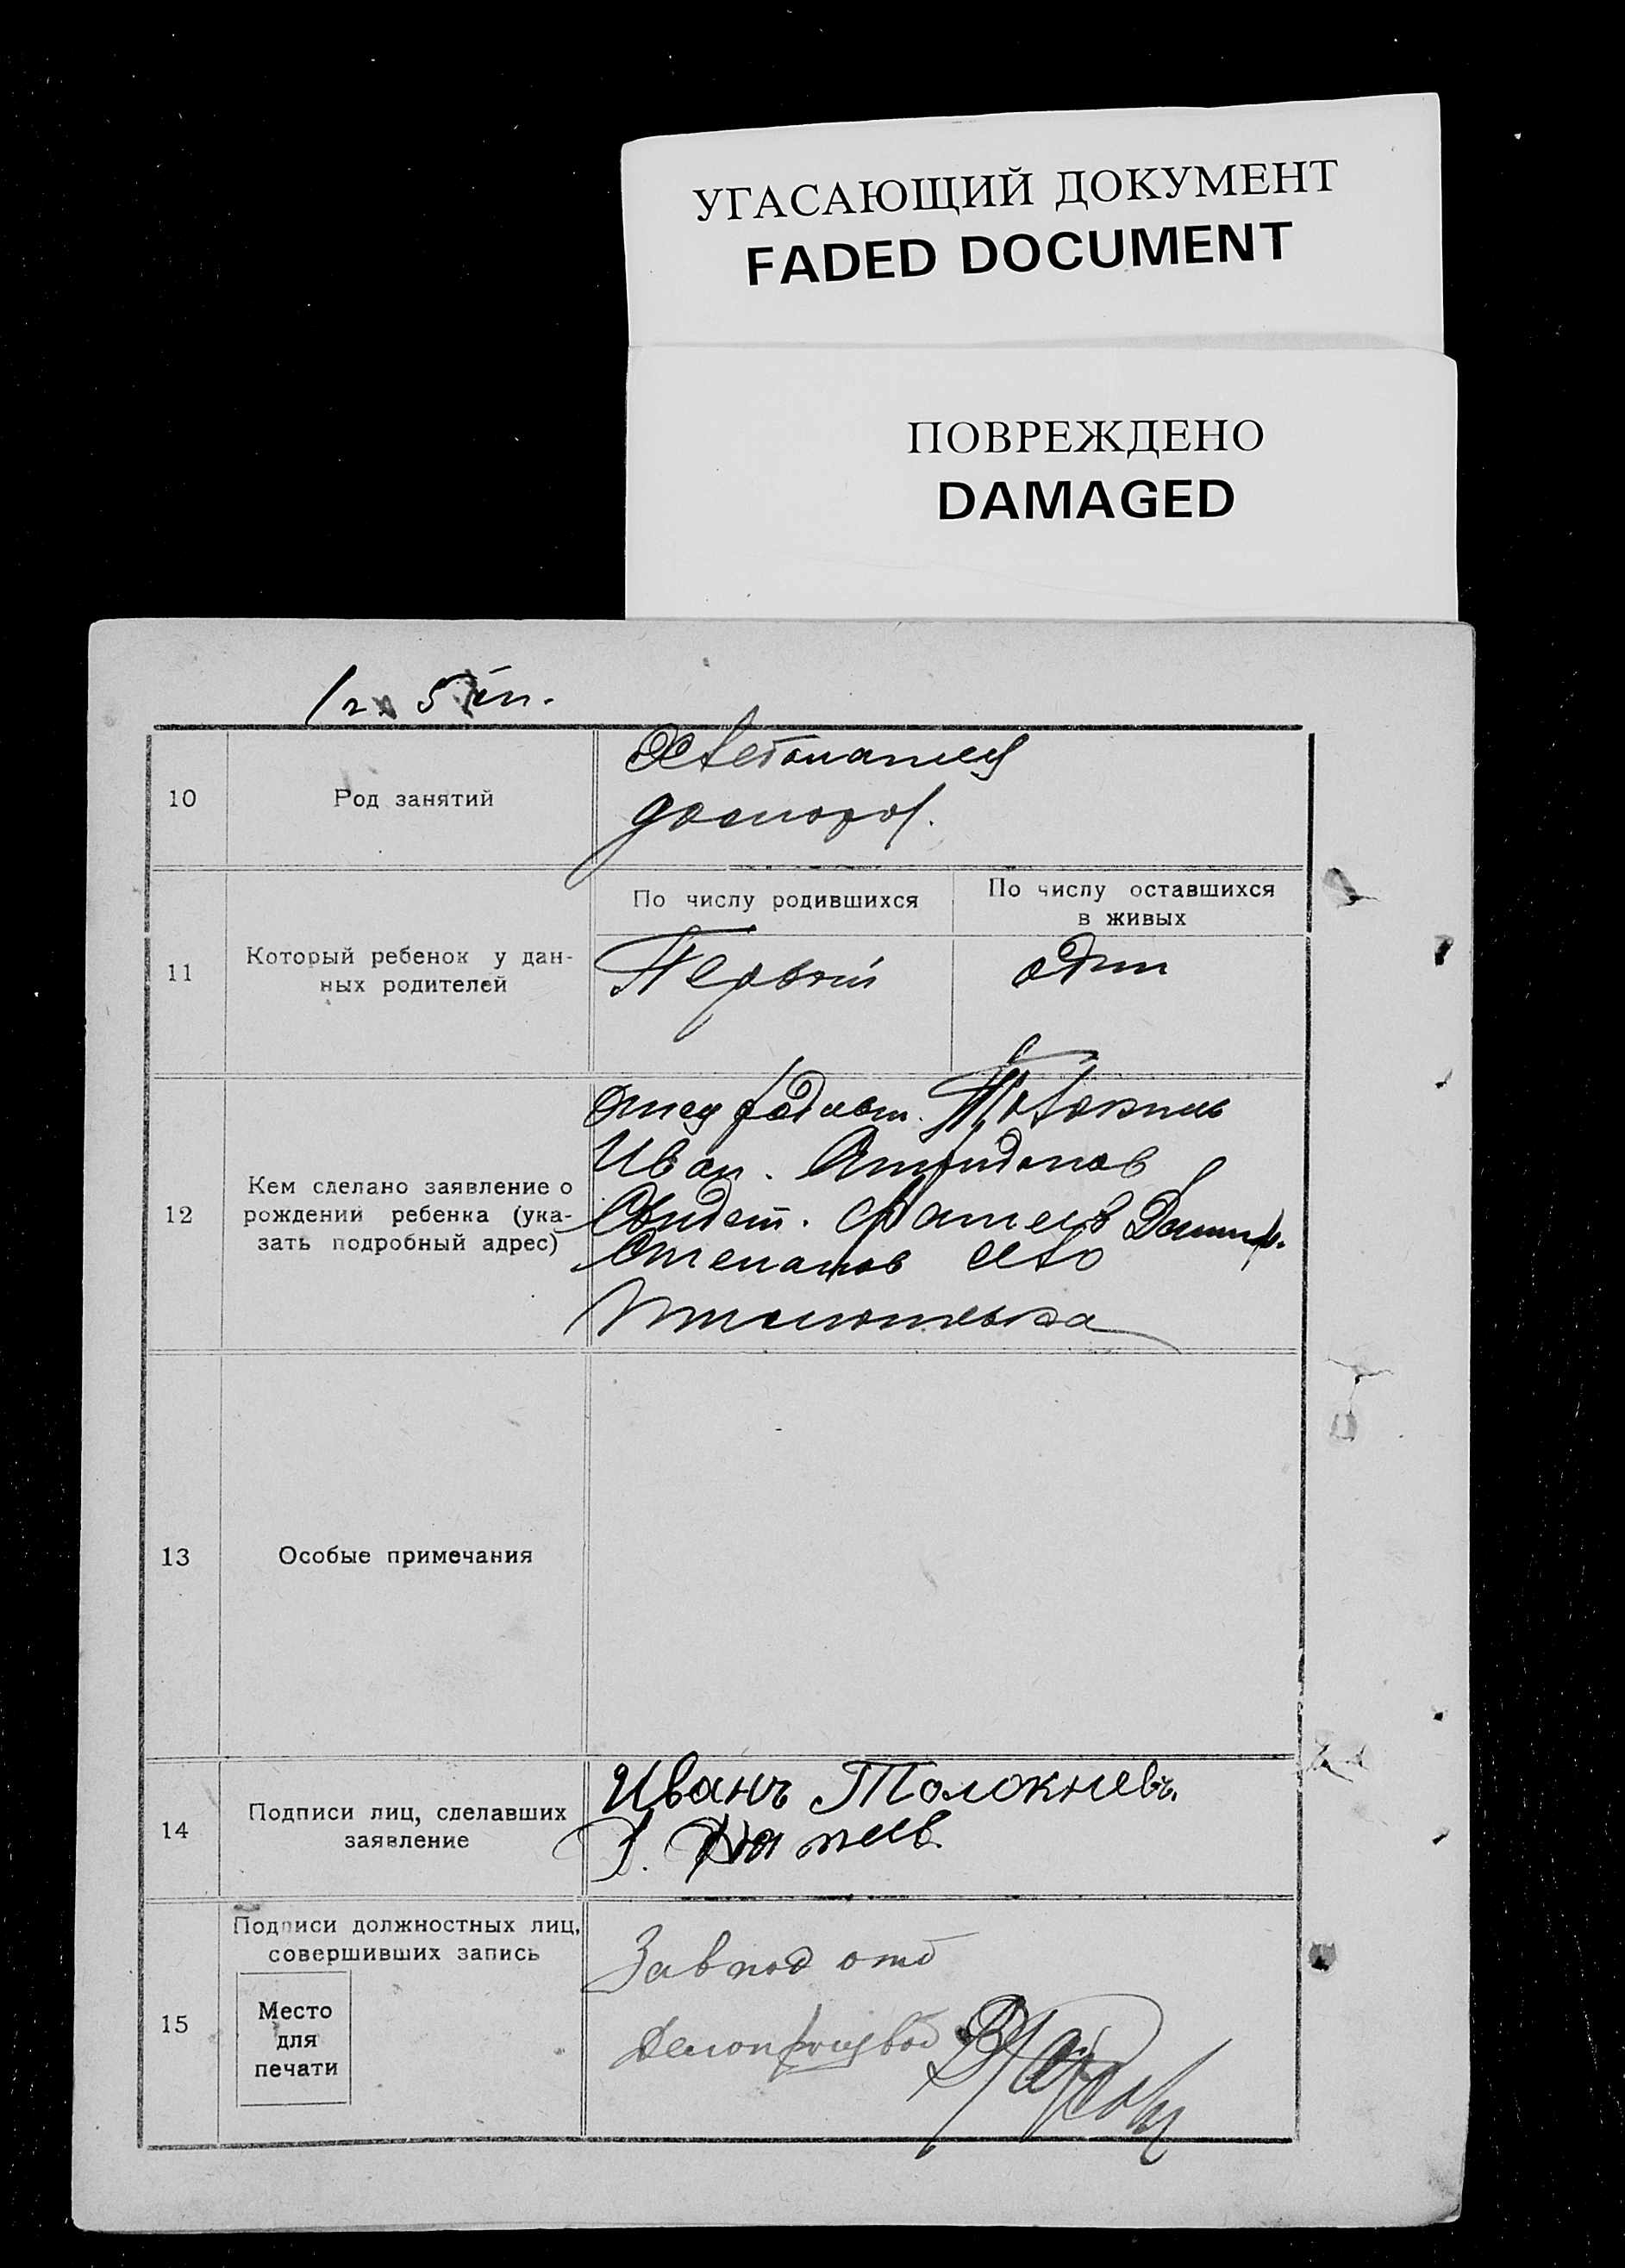 УГАСАЮЩИЙ ДОКУМЕНТ
FADED DOCUMENT
ПОВРЕЖДЕНО
DAMAGED
10
Род занятий
Хлебопашец
11
Который ребенок у дан-
ных родителей
По числу родившихся
По числу оставшихся
в живых
Первый
один
12
Кем сделано заявление о
рождении ребенка (ука-
зать подробный адрес)
отец
Иван.
Свидет.
Степанов село
13
Особые примечания
14
Подписи лиц, сделавших
заявление
Иванъ Толокневъ.
15
Подписи должностных лиц,
совершивших запись
Место
для
печати
Зав под отд
Делопроизвод